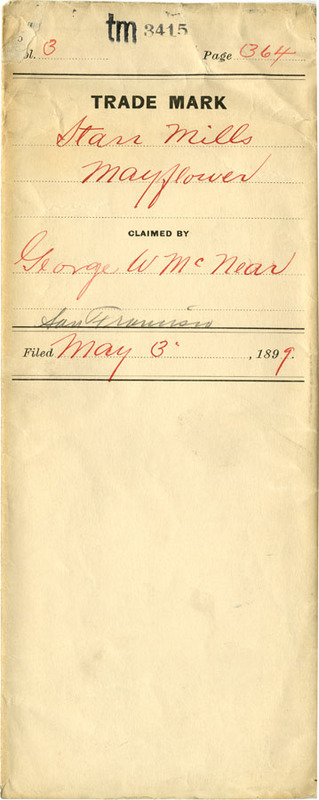 tm 3415
ol. 3 Page 364
TRADE MARK
Starr Mills
Mayflower
CLAIMED BY
George W McNear
San Francisco
Filed May 3 , 1899.